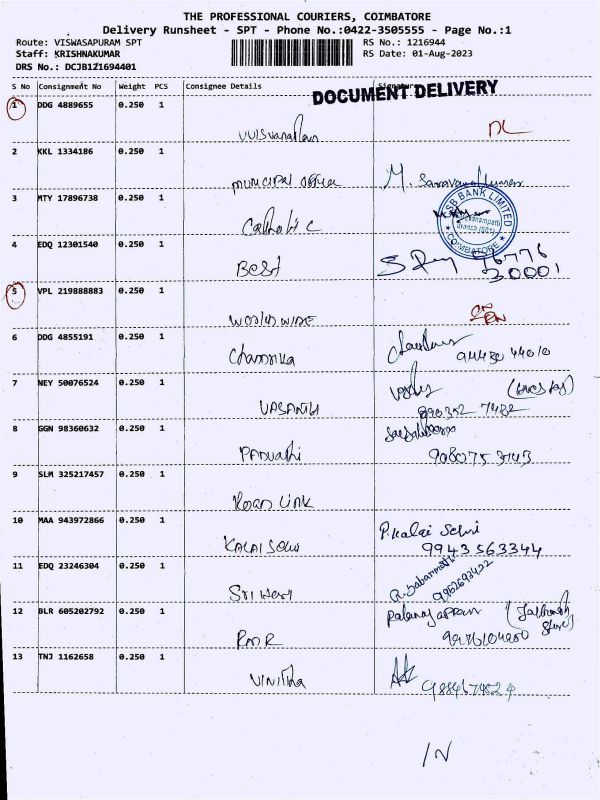 THE PROFESSIONAL COURIERS, COIMBATORE
Delivery Runsheet - SPT - Phone No.:0422-3505555 - Page No.:1
Route: VISWASAPURAM SPT RS No.: 1216944
Staff: KRISHNAKUMAR RS Date: 01-Aug-2023
DRS No.: DCJB1Z1694401
S No Consignment No Weight PCS Consignee Details Signature
DOCUMENT DELIVERY
1 DDG 4889655 0.250 1
DL
2 KKL 1334186 0.250 1
MUNICIPAL OFFICE M. Saravanakumar
3 MTY 17896738 0.250 1
Catholic
KSB BANK LIMITED
COIMBATORE
4 EDQ 12301540 0.250 1
BEST 76776
30001
5 VPL 219888883 0.250 1
WORLD WIDE
6 DDG 4855191 0.250 1
Chandrika 94430 44010
7 NEY 50076524 0.250 1
VASANTH 890352 7482
8 GGN 98360632 0.250 1
9080753143
9 SLM 325217457 0.250 1
Road Link
10 MAA 943972866 0.250 1
KALAI SELVI P. Kalai Selvi
9943563344
11 EDQ 23246304 0.250 1
9962693422
12 BLR 605202792 0.250 1
RMR
13 TNJ 1162658 0.250 1
VINITHA
IN